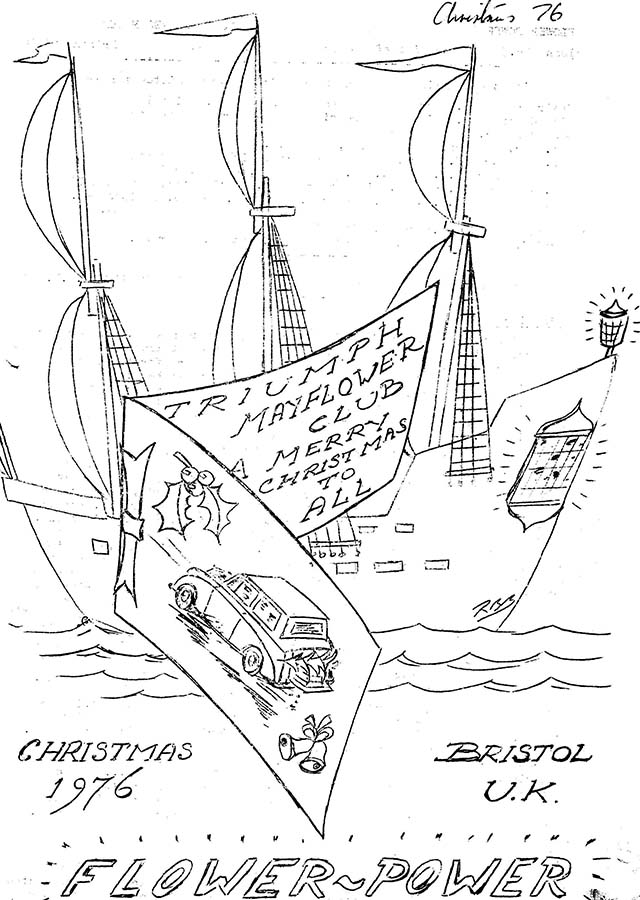 Christmas 76
TRIUMPH
MAYFLOWER
CLUB
A MERRY
CHRISTMAS
TO
ALL
CHRISTMAS
1976
BRISTOL
U.K.
FLOWER~POWER